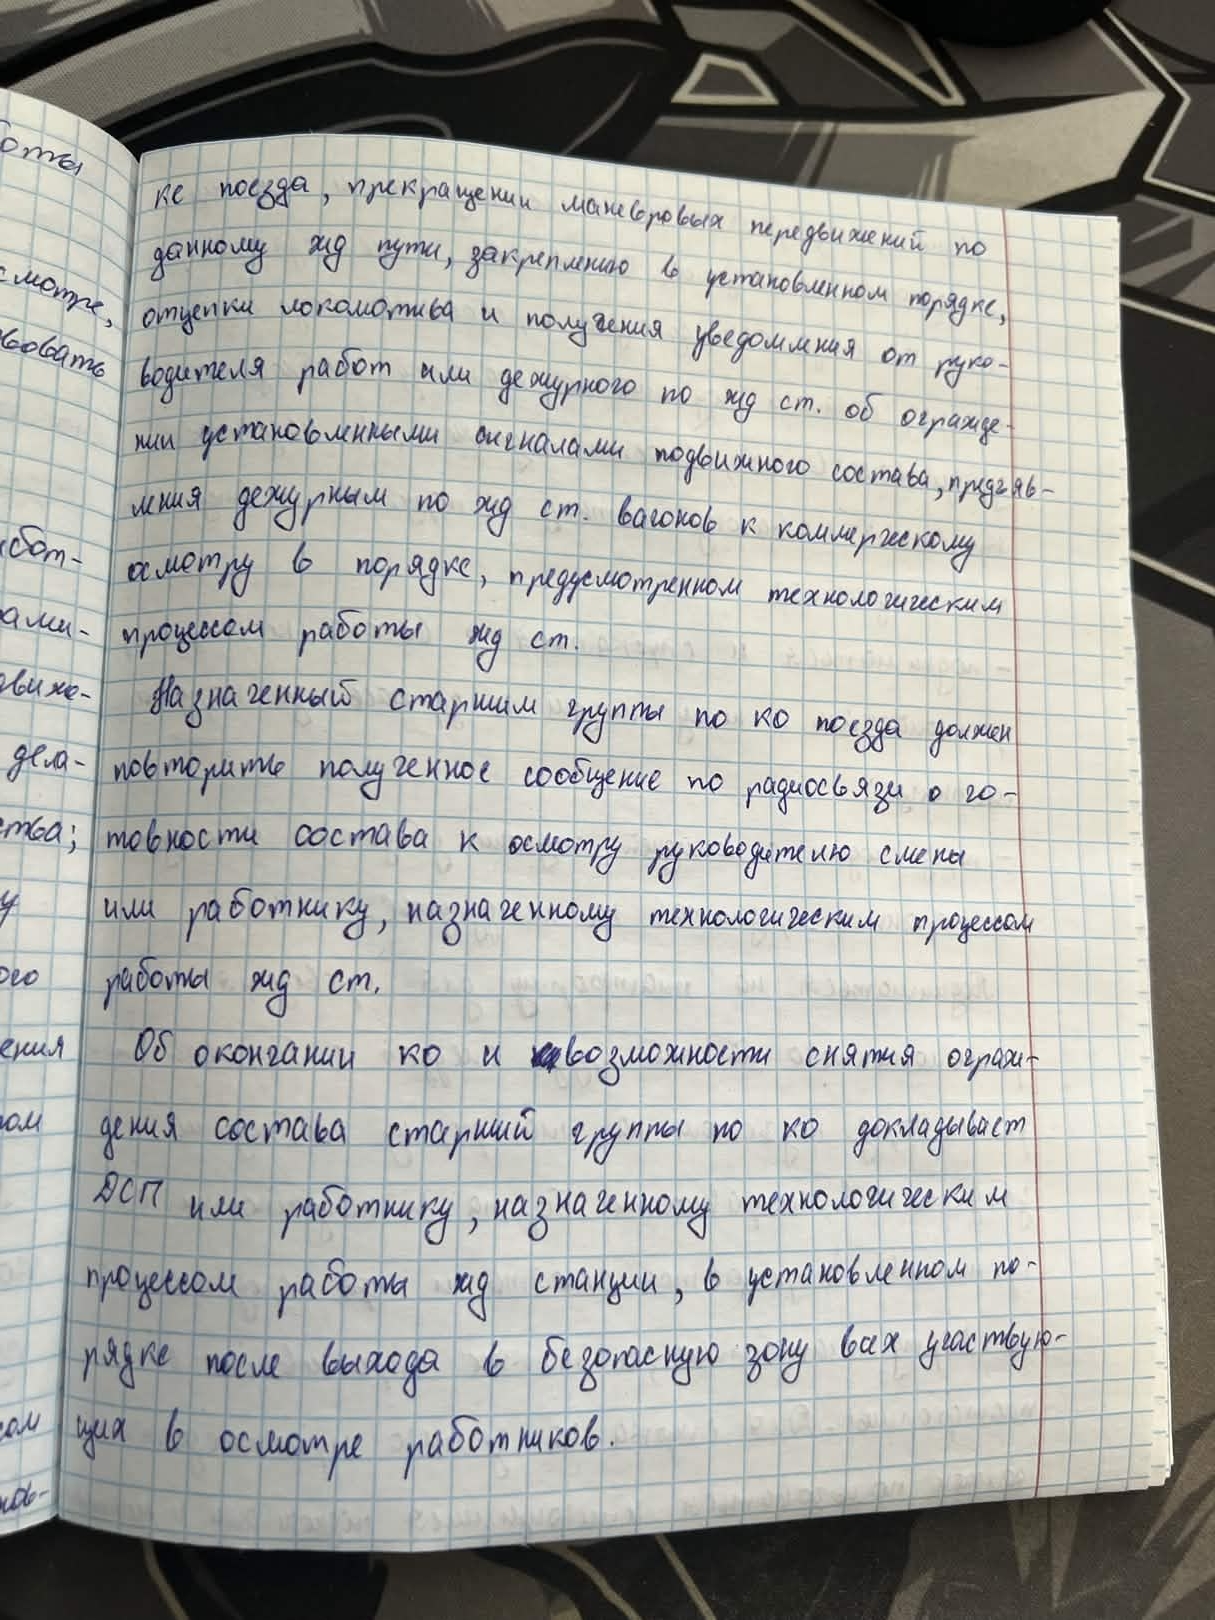 ке поезда, прекращении маневровых передвижений по
данному жд пути, закреплению в установленном порядке,
отцепки локомотива и получения уведомления от руко-
водителя работ или дежурного по жд ст. об огражде-
нии установленными сигналами подвижного состава, предъяв-
ления дежурным по жд ст. вагонов к коммерческому
осмотру в порядке, предусмотренном технологическим
процессом работы жд ст.
Назначенный старшим группы по ко поезда должен
повторить полученное сообщение по радиосвязи о го-
товности состава к осмотру руководителю смены
или работнику, назначенному технологическим процессом
работы жд ст.
Об окончании ко и возможности снятия ограж-
дения состава старший группы по ко докладывает
ДСП или работнику, назначенному технологическим
процессом работы жд станции, в установленном по-
рядке после выхода в безопасную зону всех участвую-
щих в осмотре работников.
боты
смотре,
вовать
бот-
ами-
движ-
дела-
ства;
у
ого
ения
ом
сом
нов-